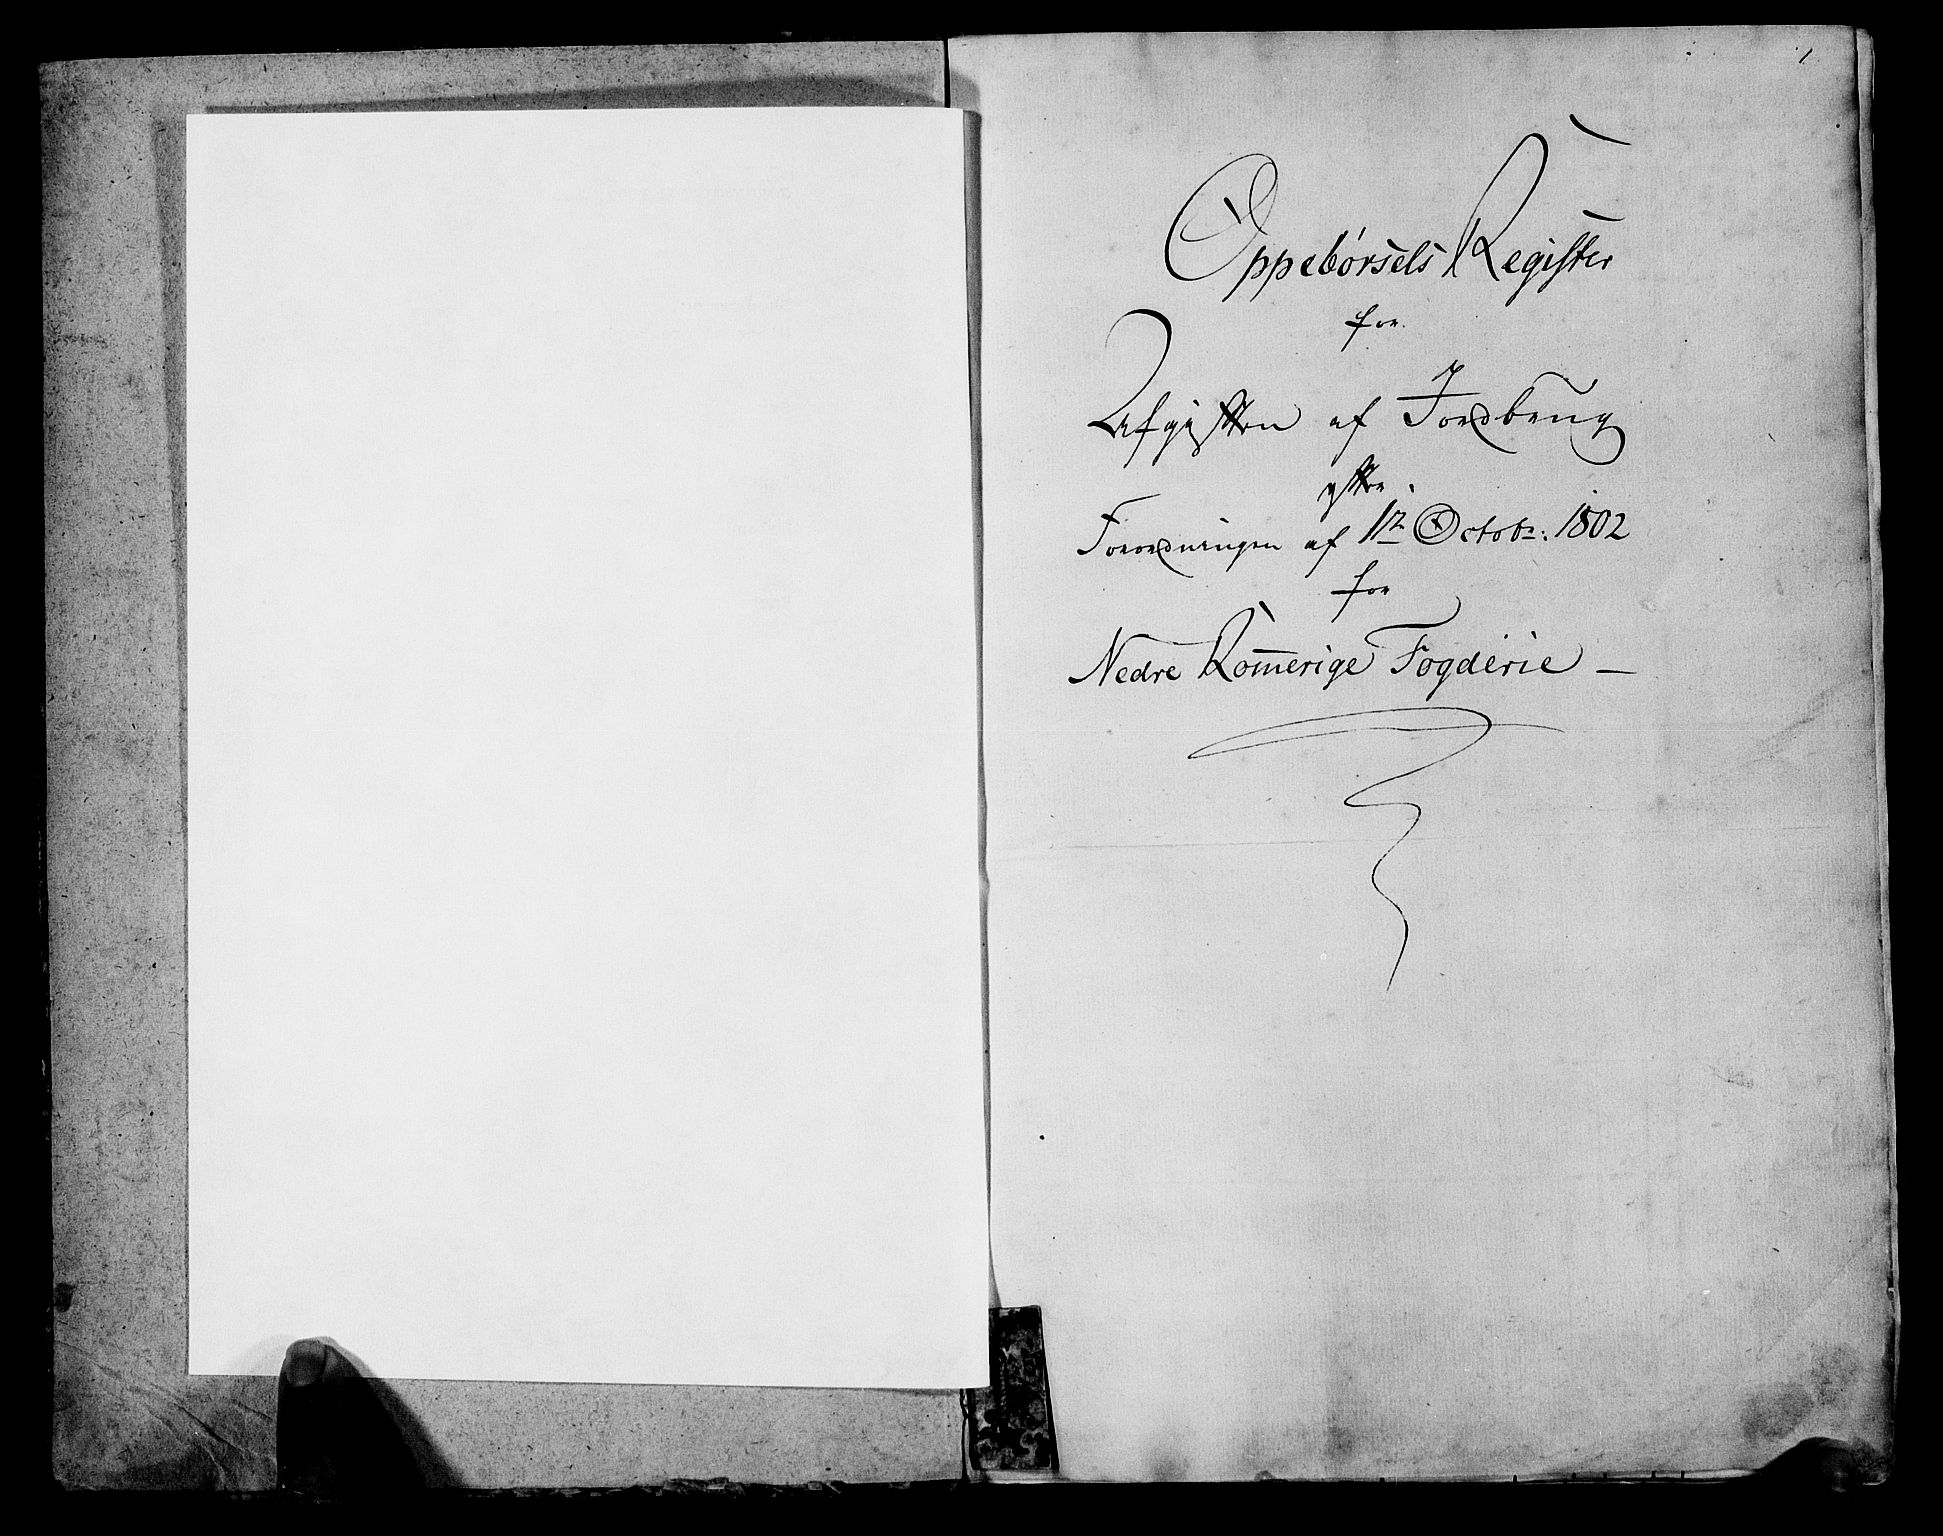 1
Oppebørsels Register
for
Afgiften af Jordbrug
efter
Forordningen af 1te Octobr: 1802
for
Nedre Romerige Fogderie —